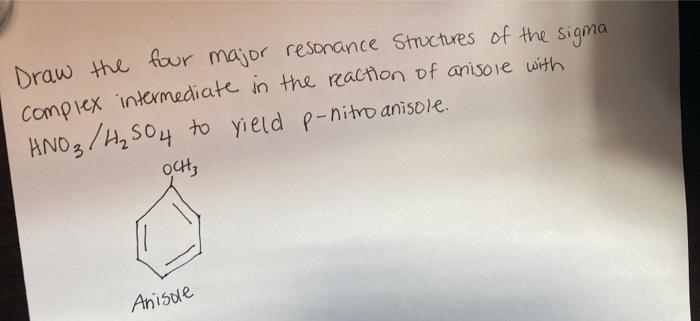 Draw the four major resonance structures of the sigma
complex intermediate in the reaction of anisole with
HNO3/H2SO4 to yield p-nitroanisole.
OCH3
Anisole